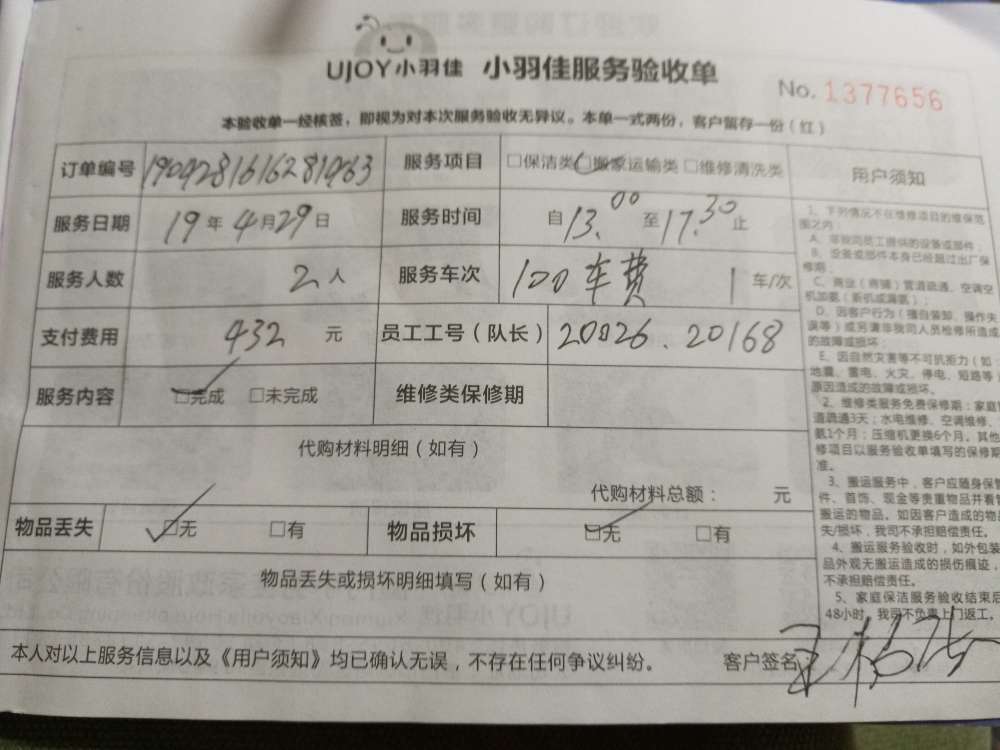 UJOY小羽佳 小羽佳服务验收单
No. 1377656
本验收单一经核签，即视为对本次服务验收无异议。本单一式两份，客户留存一份（红）
订单编号 服务项目 □保洁类 □搬家运输类 □维修清洗类
服务日期 19年4月29日 服务时间 自13.00至17.30止
服务人数 2人 服务车次 120车费 1车/次
支付费用 432元 员工工号（队长） 20026. 20168
服务内容 □完成 □未完成 维修类保修期
代购材料明细（如有）
代购材料总额： 元
物品丢失 □无 □有 物品损坏 □无 □有
物品丢失或损坏明细填写（如有）
本人对以上服务信息以及《用户须知》均已确认无误，不存在任何争议纠纷。 客户签名：
用户须知
1、下列情况不在维修项目的维保范
围之内：
A、非我司员工提供的设备或部件；
B、设备或部件本身已经超过出厂保
修期；
C、商业（商铺）管道疏通、空调空
机加氨（新机或漏氨）；
D、因客户行为（擅自装卸、操作失
误等）或另请非我司人员检修所造成
的故障或损坏；
E、因自然灾害等不可抗拒力（如：
地震、雷电、火灾、停电、短路等）
原因造成的故障或损坏。
2、维修类服务免费保修期：家庭
道疏通3天；水电维修、空调维修、
氨1个月；压缩机更换6个月。其他
修项目以服务验收单填写的保修期
准。
3、搬运服务中，客户应随身保管
件、首饰、现金等贵重物品并看管
搬运的物品。如因客户造成的物品
失/损坏，我司不承担赔偿责任。
4、搬运服务验收时，如外包装
品外观无搬运造成的损伤痕迹，
不承担赔偿责任。
5、家庭保洁服务验收结束后
48小时，我司不负责上门返工。